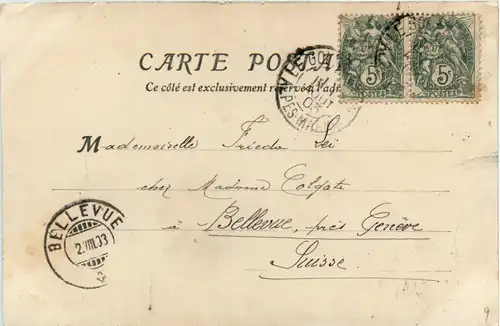 CARTE POSTALE
Ce côté est exclusivement réservé à l'adr
5 5
POSTES POSTES
Mademoiselle Frieda
chez Madame Colgate
à Bellevue, près Genève
Suisse.
BELLEVUE
2.VIII.03
9